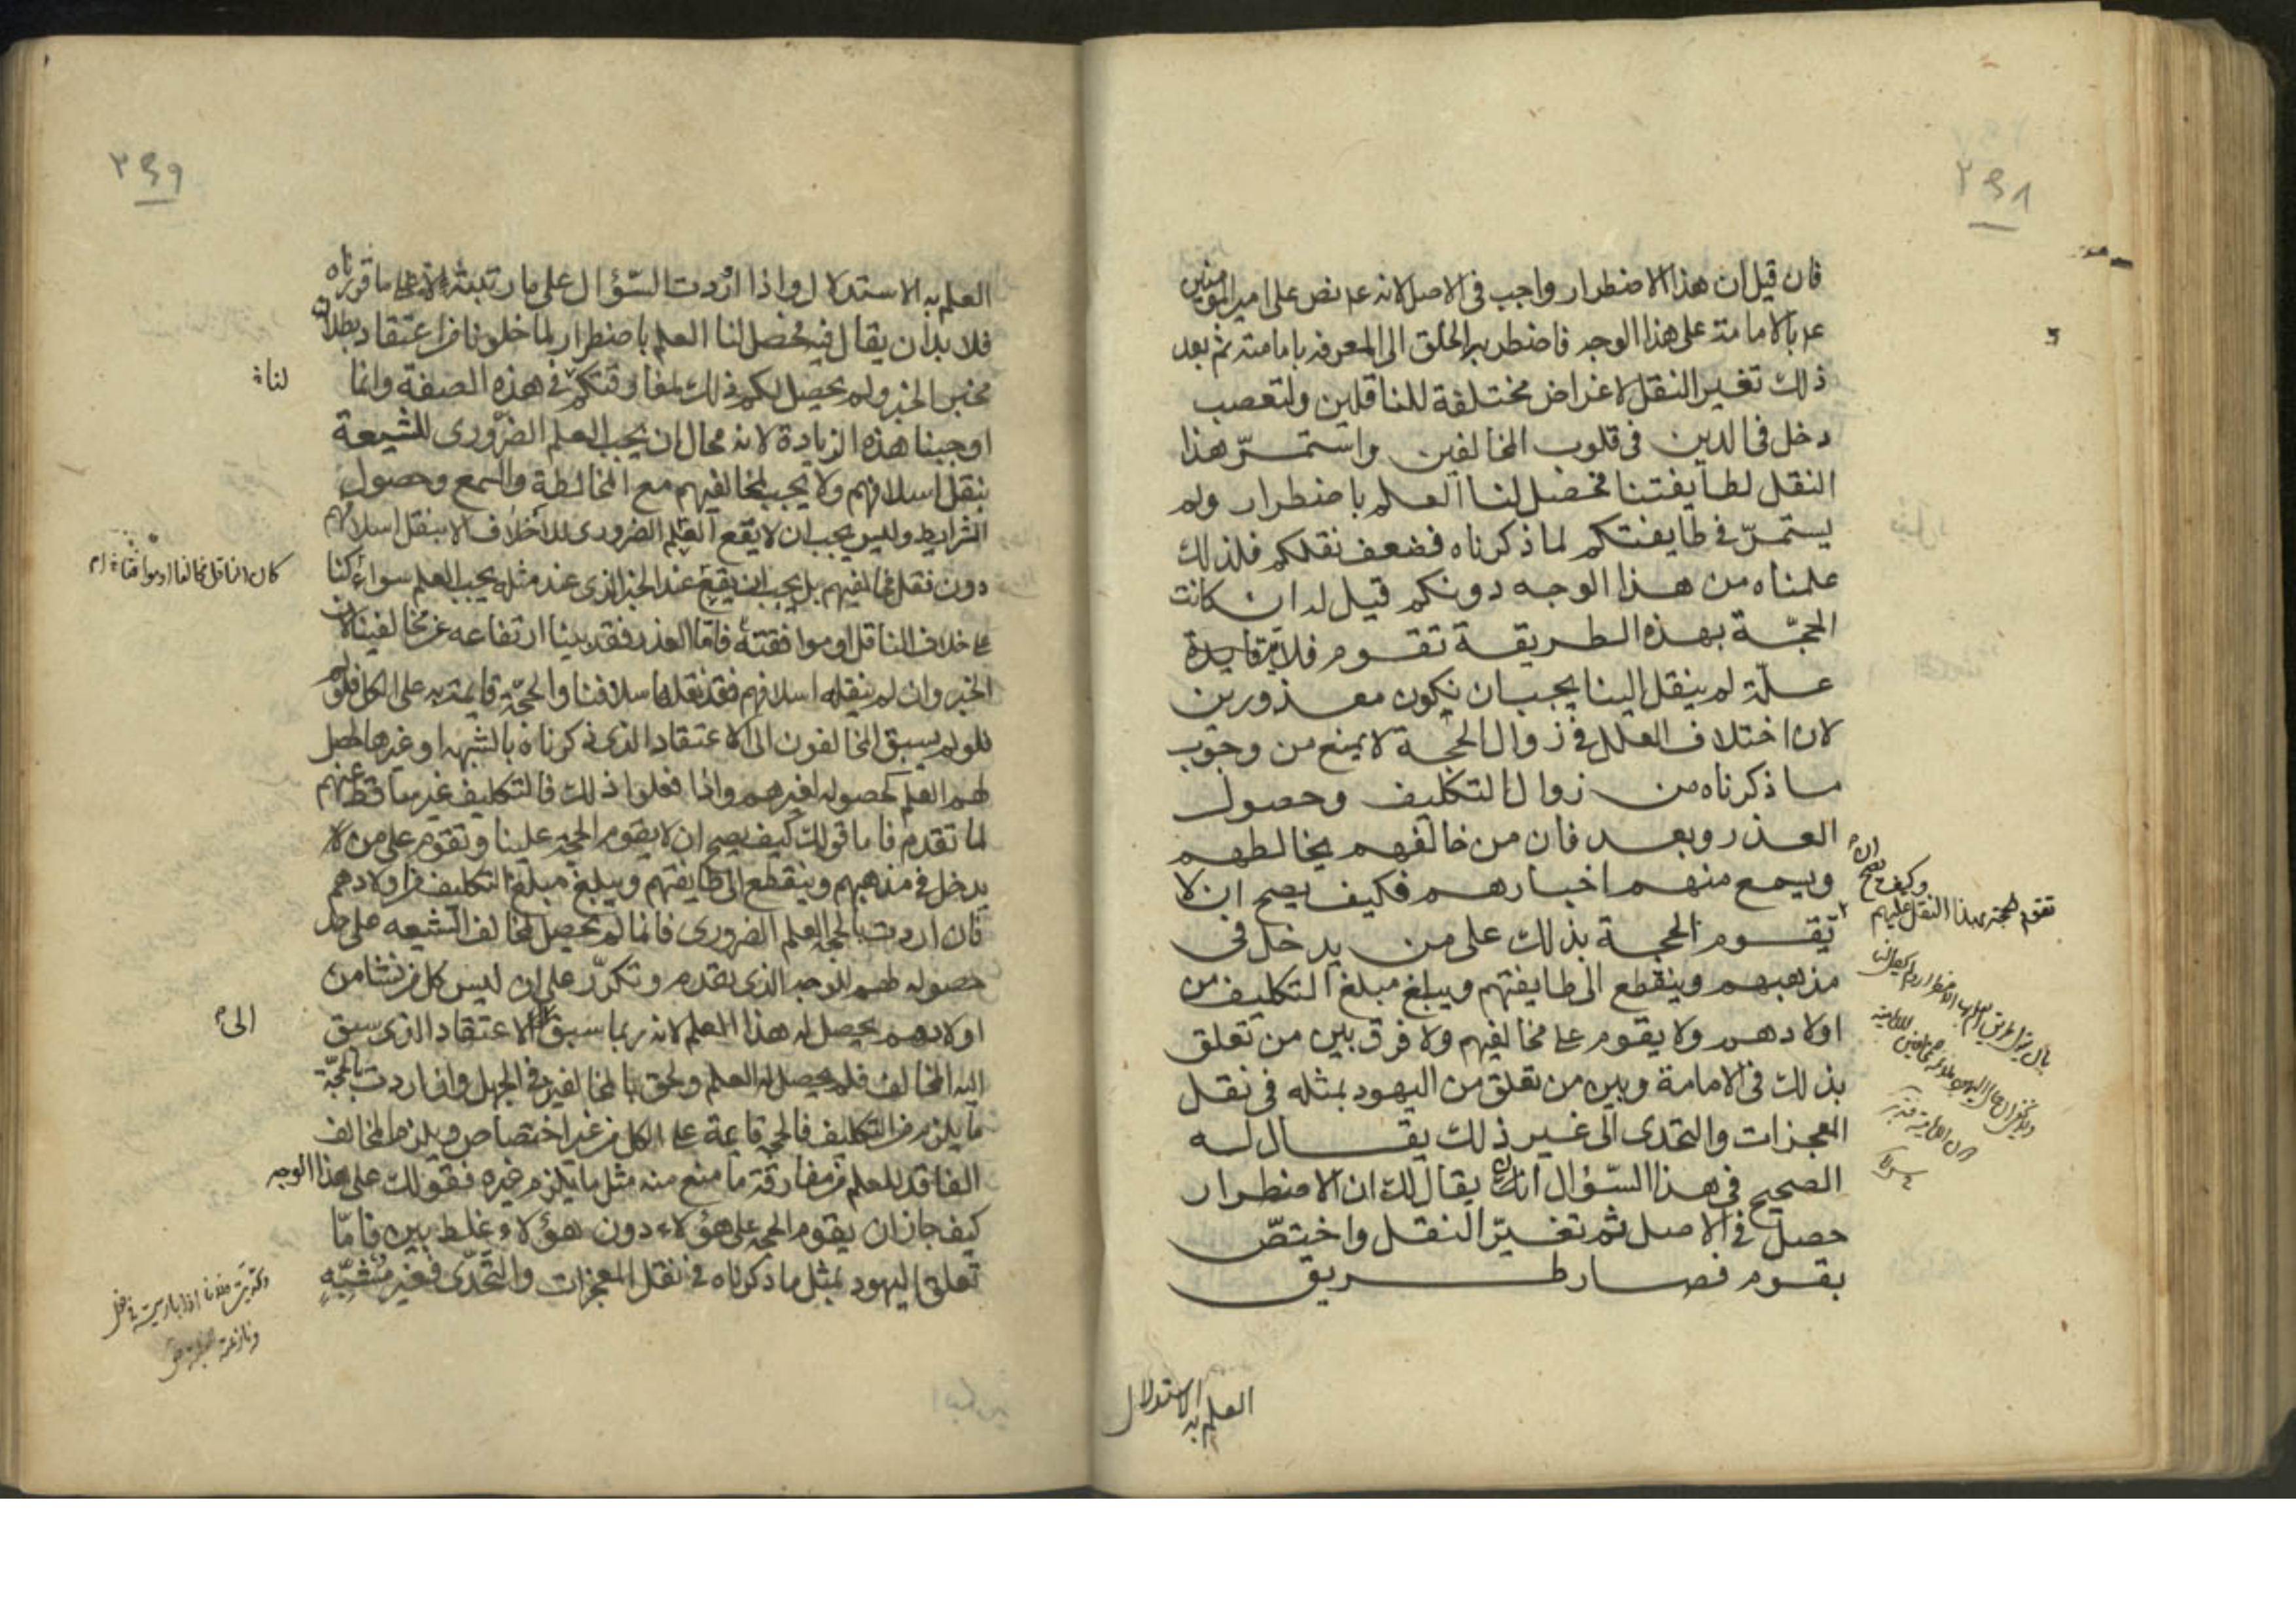 ٢٤٨
فان قيل ان هذا الاضطرار واجب فى الاصل لانه عم نص على امير المؤمنين
عم بالامامة على هذا الوجه فاضطر الخلق الى المعرفه بامامته ثم بعد
ذلك تغير النقل لاغراض مختلفة للناقلين ولتعصب
دخل فى الدين فى قلوب المخالفين واستمرّ هذا
النقل لطايفتنا فحصل لنا العلم باضطرار ولم
يستمرّ فى طايفتكم لما ذكرناه فضعف نقلكم فلذلك
علمناه من هذا الوجه دونكم قيل له ان كانت
الحجّة بهذه الطريقة تقوم فلا فايدة
علّة لم ينقل الينا يجب ان نكون معذورين
لان اختلاف العلل فى زوال الحجة لا يمنع من وجوب
ما ذكرناه من زوال التكليف وحصول
العذر وبعد فان من خالفهم يخالطهم
ويسمع منهم اخبارهم فكيف يصح ان لا
تقوم الحجة بذلك على من يدخل فى
مذهبهم وينقطع الى طايفتهم ويبلغ مبلغ التكليف من
اولادهم ولا يقوم على مخالفيهم ولا فرق بين من تعلق
بذلك فى الامامة وبين من تعلق من اليهود بمثله فى نقل
المعجزات والتحدى الى غير ذلك يقال له
الصحيح فى هذا السّؤال ان يقال لك ان الاضطرار
حصل فى الاصل ثم تغيّر النقل واختصّ
بقوم فصار طريق
وكيف يصح ان
تقوم الحجة بهذا النقل عليهم
العلم به الاستدلال
٢٤٩
العلم به الاستدلال واذا اردت السّؤال على ما رتبته على ما قررناه
فلا بد ان يقال فيه فحصل لنا العلم باضطرار لما خلونا من اعتقاد بطلان
مخبر الخبر ولم يحصل لكم ذلك لمفارقتكم فى هذه الصفة وانما
لنا
اوجبنا هذه الزيادة لانه محال ان يجب العلم الضّرورى للشيعة
بنقل اسلافهم ولا يجب لمخالفيهم مع المخالطة والسمع وحصول
الشرايط وليس يجب ان لا يقع العلم الضرورى للاخلاف الا بنقل اسلافهم
دون نقل مخالفيهم بل يجب ان يقع عند الخبر الذى عند مثله يجب العلم سواء كنا
كان الناقل مخالفا او موافقا
على خلاف الناقل او موافقته فامّا العذر فقد بينا ارتفاعه عن مخالفينا لان
الخبر وان لم ينقله اسلافهم فقد نقله اسلافنا والحجّة قايمة به على الكل
فلو لم يسبق المخالفون الى الاعتقاد الذى ذكرناه بالشبهه او غيرها لحصل
لهم العلم كحصوله لغيرهم واذا فعلوا ذلك فالتكليف غير ساقط عنهم
لما تقدم فاما قولك كيف يصح ان لا يقوم الحجة علينا وتقوم على من لا
يدخل فى مذهبهم وينقطع الى طايفتهم ويبلغ مبلغ التكليف من اولادهم
فان اردت بالحجة العلم الضرورى فانما لم يحصل لمخالف الشيعه على حد
حصوله لهم للوجه الذى تقدم وتكرّر على ان ليس كل من نشا من
اولادهم يحصل له هذا العلم لانه ربما سبق الاعتقاد الذى سبق
الى
اليه المخالف فلم يحصل له العلم ولحق بالمخالفين فى الجهل وان اردت بالحجّة
ما يلزم من التكليف فالحجة قائمة على الكل من غير اختصاص ويلزم المخالف
الفاقد للعلم من مفارقة ما منع منه مثل ما يلزم غيره فقولك على هذا الوجه
كيف جاز ان يقوم الحجة على هؤلاء دون هؤلاء غلط بين فامّا
تعلق اليهود بمثل ما ذكرناه فى نقل المعجزات والتحدّى فغير مشبّه